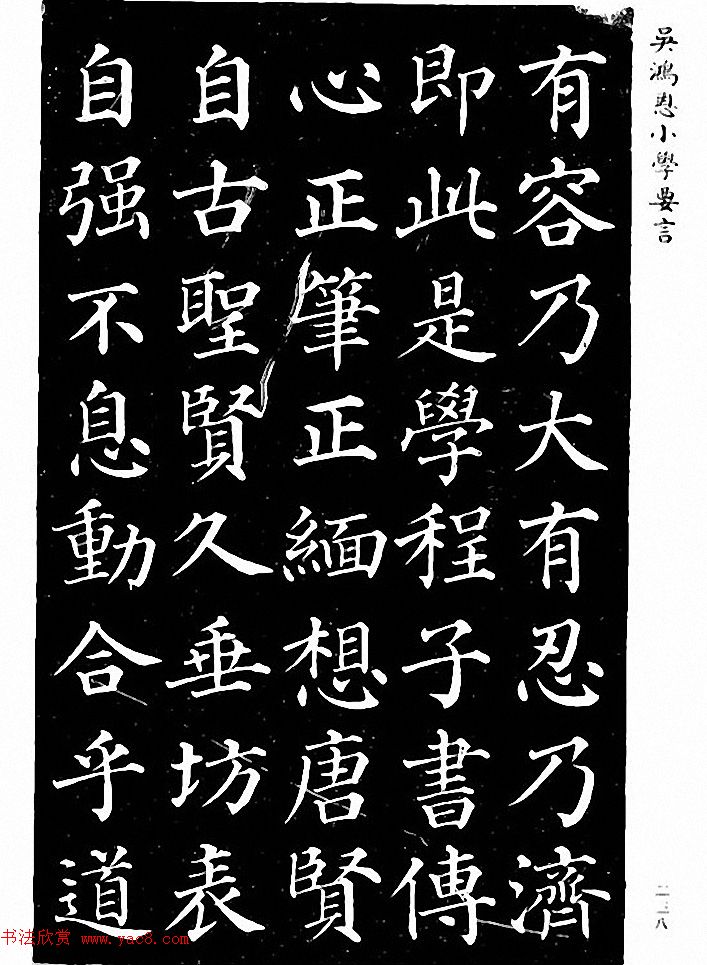 吳鴻恩小學要言
有容乃大有忍乃濟
即此是學程子書傳
心正筆正緬想唐賢
自古聖賢久垂坊表
自强不息動合乎道
二三八
书法欣赏 www.yac8.com